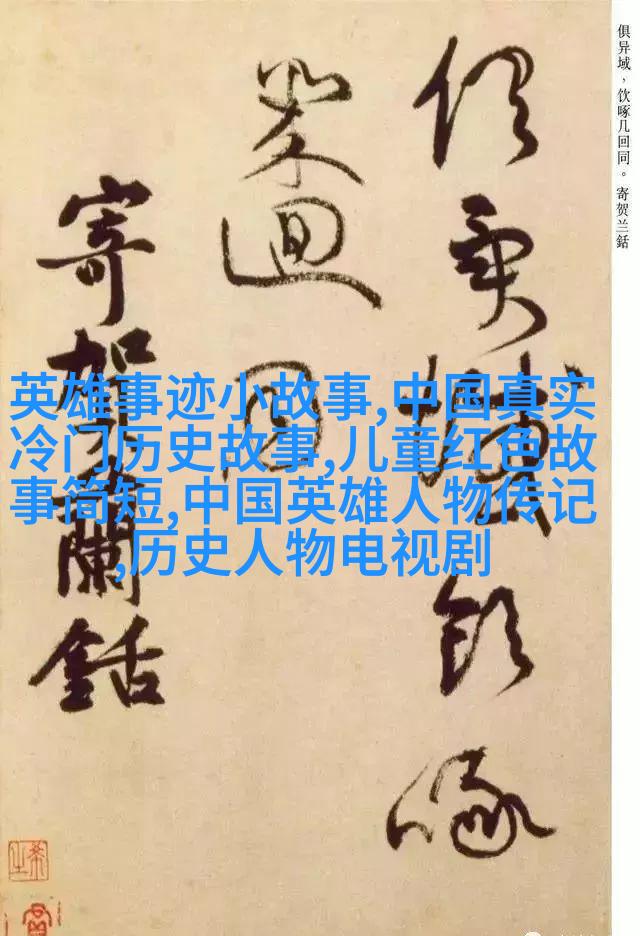 俱异域，饮啄几回同。寄贺兰銛
俱異域飲啄
幾迴同
寄賀蘭銛
英雄事迹小故事,中国真实
冷门历史故事,儿童红色故
事简短,中国英雄人物传记
,历史人物电视剧